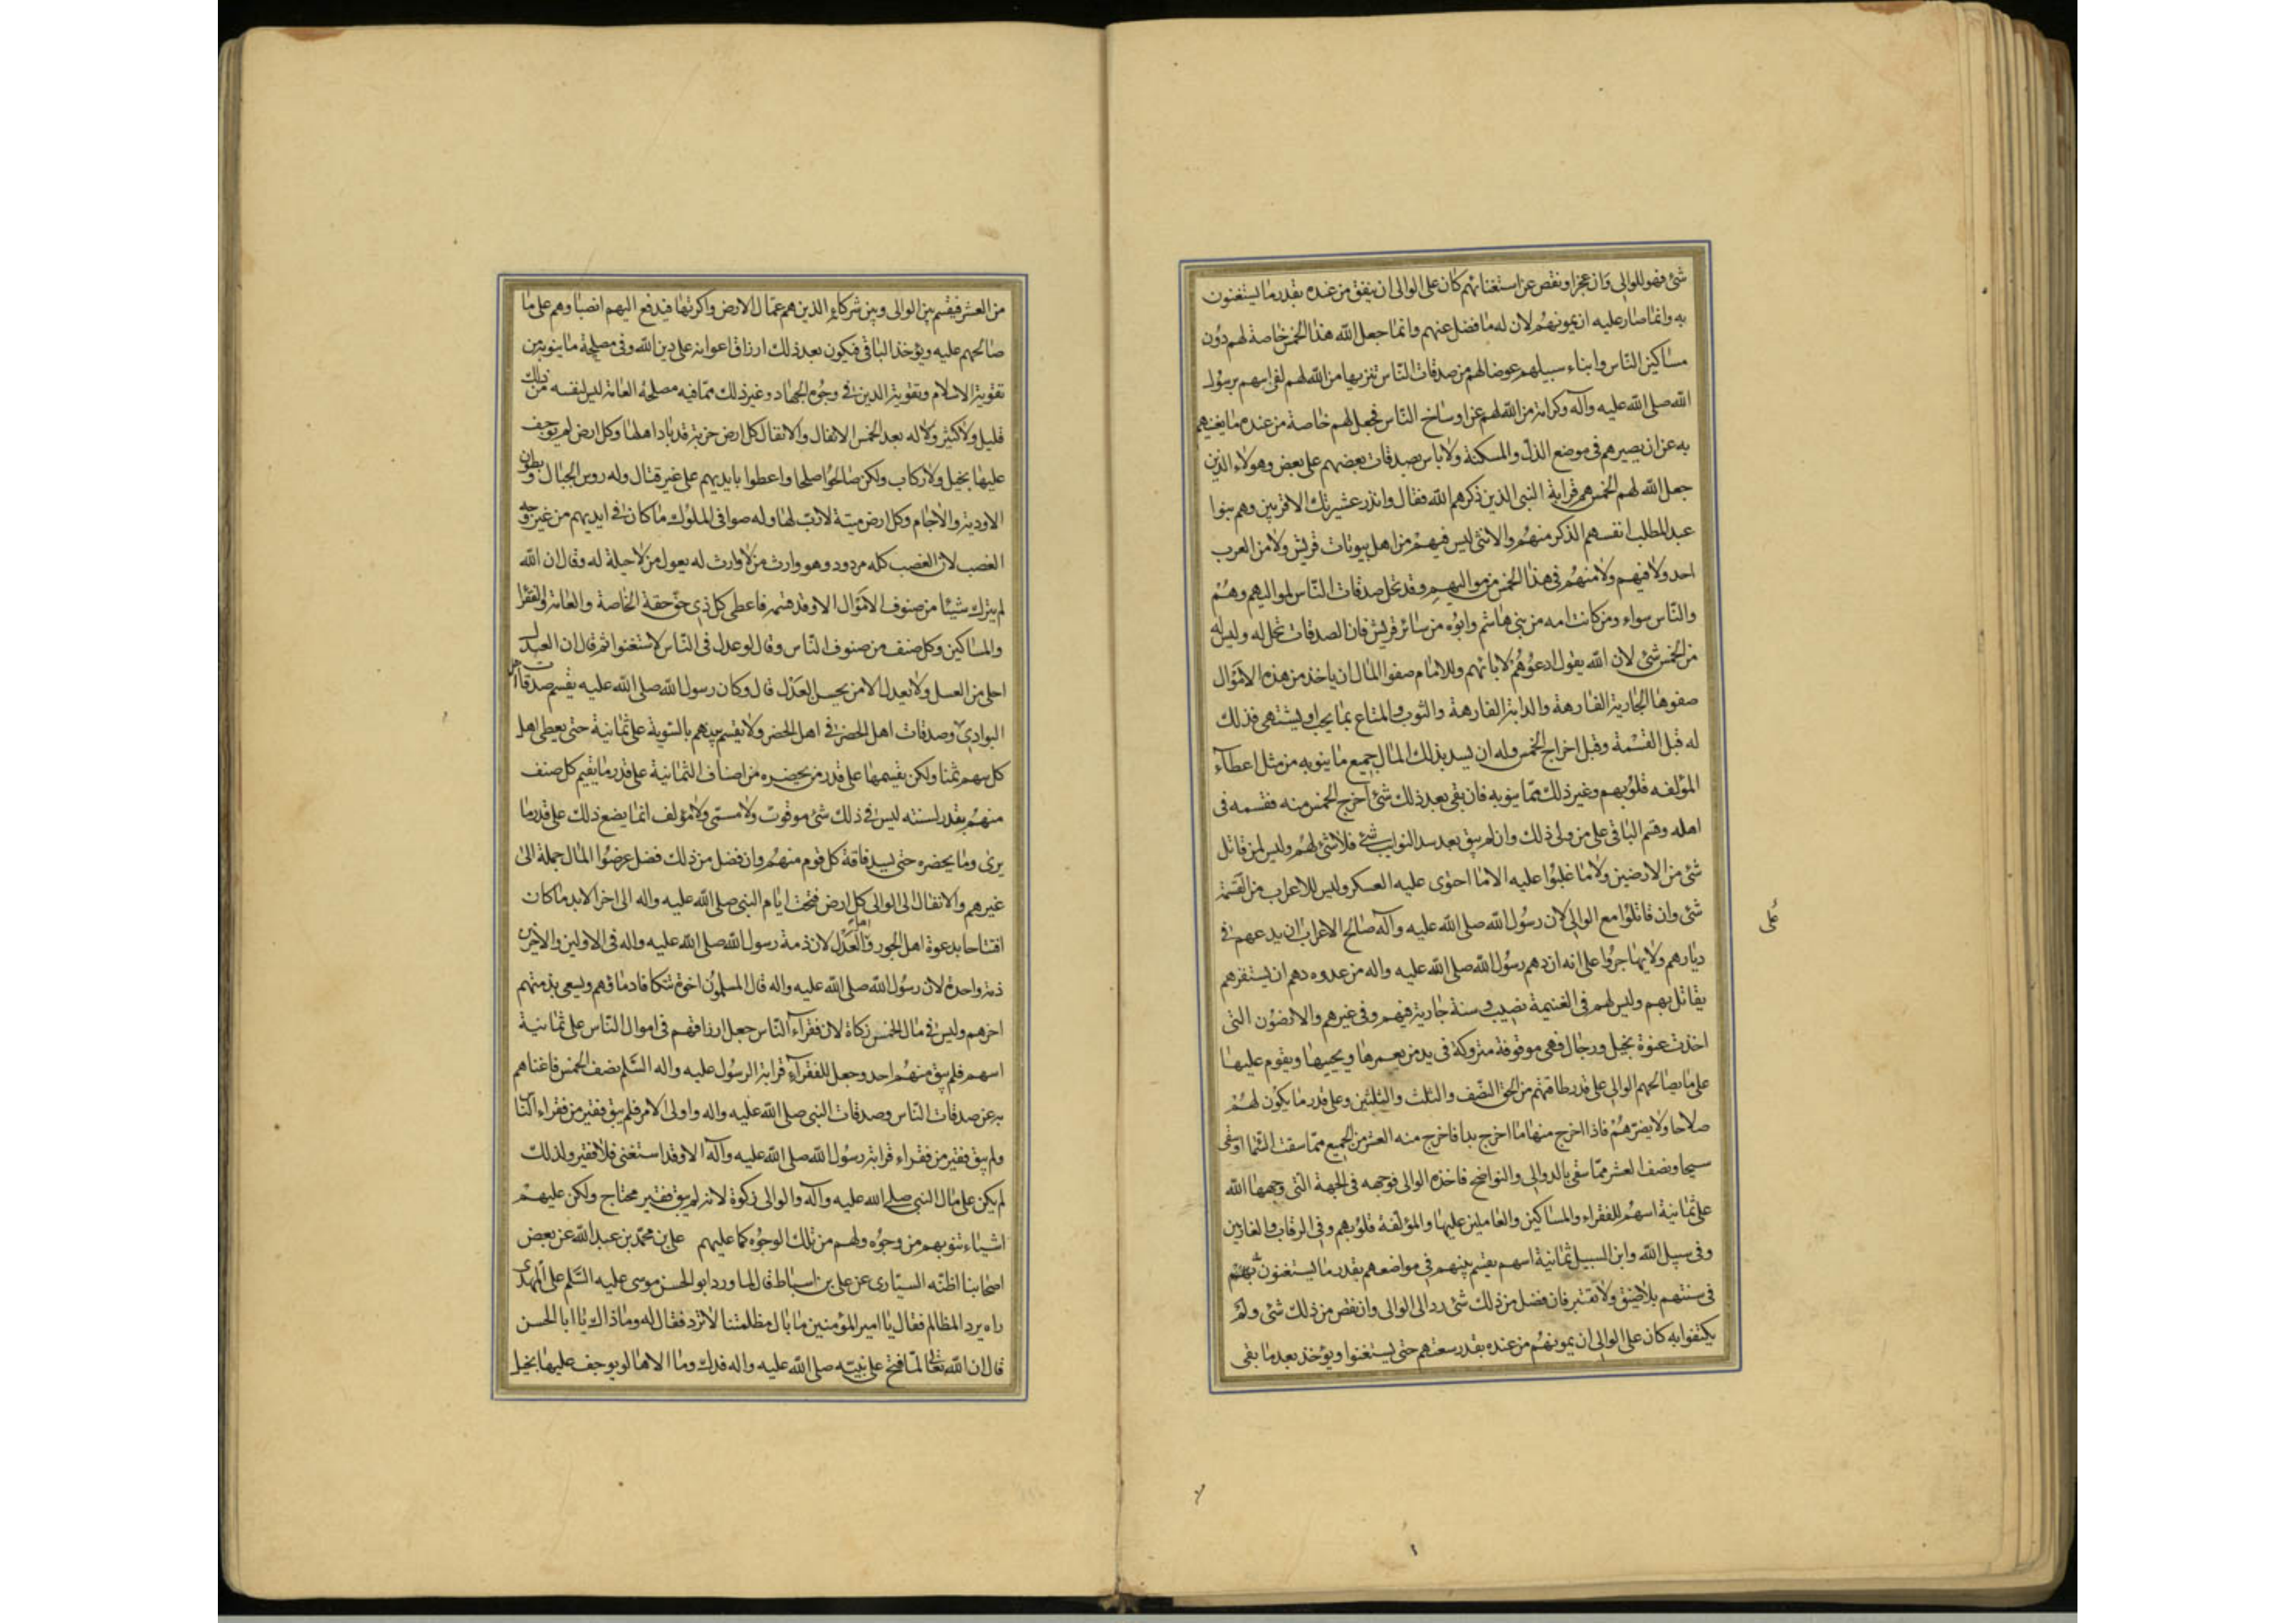 شئ فهو للوالى وان عجز او نقص عن استغنائهم كان على الوالى ان ينفق من عنده بقدر ما يستغنون
به وانما صار عليه ان يمونهم لان له ما فضل عنهم وانما جعل الله هذا الخمس خاصة لهم دون
مساكين الناس وابناء سبيلهم عوضا لهم من صدقات الناس تنزيها من الله لهم لقرابتهم برسول
الله صلى الله عليه وآله وكرامة من الله لهم عن اوساخ الناس فجعل لهم خاصة من عنده ما يغنيهم
به عن ان يصيرهم فى موضع الذل والمسكنة ولا باس بصدقات بعضهم على بعض وهولاء الذين
جعل الله لهم الخمس هم قرابة النبى الذين ذكرهم الله فقال وانذر عشيرتك الاقربين وهم بنوا
عبد المطلب انفسهم الذكر منهم والانثى ليس فيهم من اهل بيوتات قريش ولا من العرب
احد ولا فيهم ولا منهم فى هذا الخمس من مواليهم وقد تحل صدقات الناس لمواليهم وهم
والناس سواء ومن كانت امه من بنى هاشم وابوه من سائر قريش فان الصدقات تحل له وليس له
من الخمس شئ لان الله يقول ادعوهم لابائهم وللامام صفوا المال ان ياخذ من هذه الاموال
صفوها الجارية الفارهة والدابة الفارهة والثوب والمتاع بما يحب او يشتهى فذلك
له قبل القسمة وقبل اخراج الخمس وله ان يسد بذلك المال جميع ما ينوبه من مثل اعطاء
المؤلفه قلوبهم وغير ذلك مما ينوبه فان بقى بعد ذلك شئ اخرج الخمس منه فقسمه فى
اهله وقسم الباقى على من ولى ذلك وان لم يبق بعد سد النوايب شئ فلا شئ لهم وليس لمن قاتل
شئ من الارضين ولا ما غلبوا عليه الا ما احتوى عليه العسكر وليس للاعراب من القسمة
شئ وان قاتلوا مع الوالى لان رسول الله صلى الله عليه وآله صالح الاعراب ان يدعهم فى
ديارهم ولا يهاجروا على انه ان دهم رسول الله صلى الله عليه واله من عدوه دهم ان يستفزهم
على
يقاتل بهم وليس لهم فى الغنيمة نصيب و سنة جارية فيهم وفى غيرهم والارضون التى
اخذت عنوة بخيل ورجال فهى موقوفة متروكة فى يد من يعمرها ويحييها ويقوم عليها
على ما يصالحهم الوالى على قدر طاقتهم من الحق النصف والثلث والثلثين وعلى قدر ما يكون لهم
صلاحا ولا يضرهم فاذا اخرج منها ما اخرج بدا فاخرج منه العشر من الجميع مما سقت السماء او سقى
سيحا ونصف العشر مما سقى بالدوالى والنواضح فاخذه الوالى فوجهه فى الجهة التى وجهها الله
على ثمانية اسهم للفقراء والمساكين والعاملين عليها والمؤلفة قلوبهم وفى الرقاب والغارمين
وفى سبيل الله وابن السبيل ثمانية اسهم يقسم بينهم فى مواضعهم بقدر ما يستغنون به
فى سنتهم بلا ضيق ولا تقتير فان فضل من ذلك شئ رد الى الوالى وان نقص من ذلك شئ ولم
يكتفوا به كان على الوالى ان يمونهم من عنده بقدر سعتهم حتى يستغنوا ويؤخذ بعد ما بقى
من العشر فيقسم بين الوالى وبين شركائه الذين هم عمال الارض واكرتها فيدفع اليهم انصباوهم على ما
صالحهم عليه ويؤخذ الباقى فيكون بعد ذلك ارزاق اعوانه على دين الله وفى مصلحة ما ينوبه من
تقوية الاسلام وتقوية الدين فى وجوه الجهاد وغير ذلك مما فيه مصلحة العامة ليس لنفسه من ذلك
قليل ولا كثير وله بعد الخمس الانفال والانفال كل ارض خربة قد باد اهلها وكل ارض لم يوجف
عليها بخيل ولا ركاب ولكن صالحوا صلحا واعطوا بايديهم على غير قتال وله روس الجبال وبطون
الاودية والاجام وكل ارض ميتة لا رب لها وله صوافى الملوك ما كان فى ايديهم من غير وجه
الغصب لان الغصب كله مردود وهو وارث من لا وارث له يعول من لا حيلة له وقال ان الله
لم يترك شيئا من صنوف الاموال الا وقد قسمه فاعطى كل ذى حق حقه الخاصة والعامة والفقرا
والمساكين وكل صنف من صنوف الناس وقال لو عدل فى الناس لاستغنوا ثم قال ان العدل
احلى من العسل ولا يعدل الا من يحسن العدل قال وكان رسول الله صلى الله عليه يقسم صدقات اهل
البوادى وصدقات اهل الحضر فى اهل الحضر ولا يقسم بينهم بالسوية على ثمانية حتى يعطى اهل
كل سهم ثمنا ولكن يقسمها على قدر من يحضره من اصناف الثمانية على قدر ما يقيم كل صنف
منهم بقدر لسنته ليس فى ذلك شئ موقوت ولا مسمى ولا مؤلف انما يضع ذلك على قدر ما
يرى وما يحضره حتى يسد فاقة كل قوم منهم وان فضل من ذلك فضل عرضوا المال جملة الى
غيرهم والانفال الى الوالى كل ارض فتحت ايام النبى صلى الله عليه واله الى اخر الابد ما كان
افتتاحا بدعوة اهل الجور واهل العدل لان ذمة رسول الله صلى الله عليه واله فى الاولين والاخرين
ذمة واحدة لان رسول الله صلى الله عليه واله قال المسلمون اخوة تتكافا دماؤهم ويسعى بذمتهم
اخرهم وليس فى مال الخمس زكاة لان فقراء الناس جعل ارزاقهم فى اموال الناس على ثمانية
اسهم فلم يبق منهم احد وجعل للفقراء قرابة الرسول عليه واله السلم نصف الخمس فاغناهم
به عن صدقات الناس وصدقات النبى صلى الله عليه واله واولى الامر فلم يبق فقير من فقراء الناس
ولم يبق فقير من فقراء قرابة رسول الله صلى الله عليه وآله الا وقد استغنى فلا فقير ولذلك
لم يكن على مال النبى صلى الله عليه وآله والوالى زكوة لانه لم يبق فقير محتاج ولكن عليهم
اشياء تنوبهم من وجوه ولهم من تلك الوجوه كما عليهم على بن محمد بن عبد الله عن بعض
اصحابنا اظنه السيارى عن على بن اسباط قال لما ورد ابو الحسن موسى عليه السلم على المهدى
راه يرد المظالم فقال يا امير المؤمنين ما بال مظلمتنا لا ترد فقال له وما ذاك يا ابا الحسن
قال ان الله تعالى لما فتح على نبيه صلى الله عليه واله فدك وما والاها لم يوجف عليها بخيل